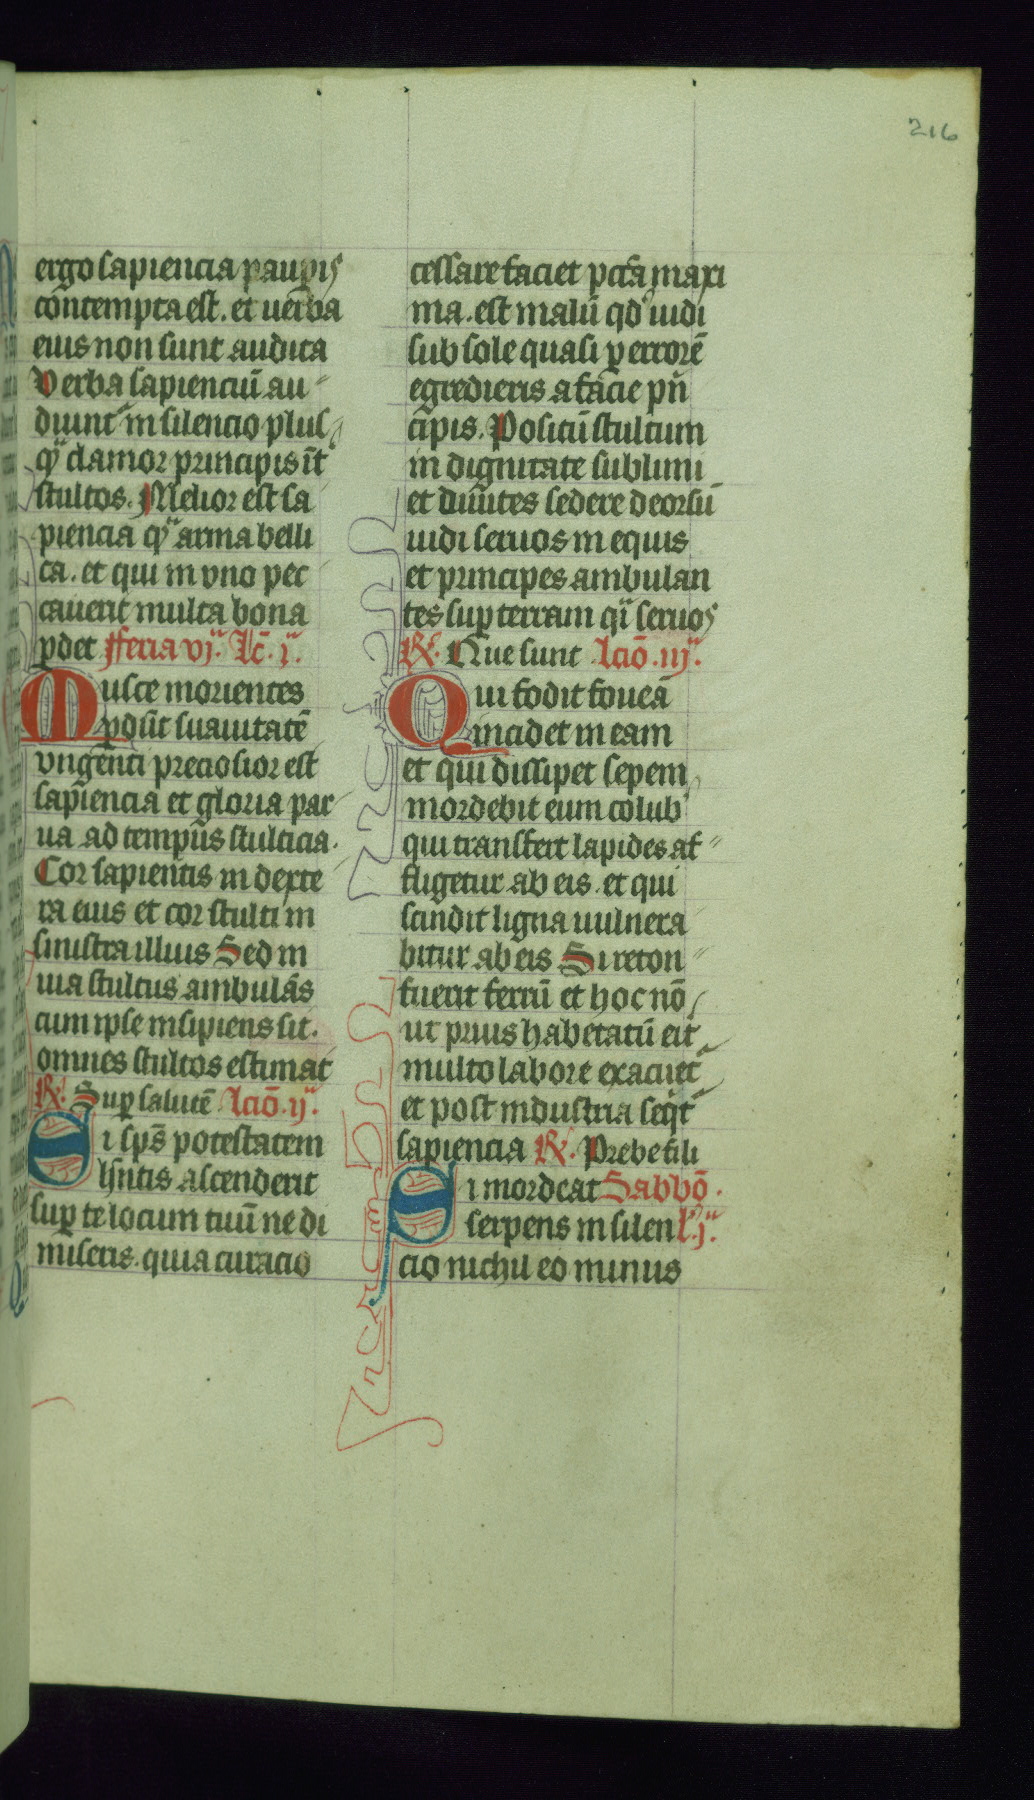 216
ergo sapiencia paupis
contempta est. et uerba
eius non sunt audita
Verba sapienciū au
diunt̉ in silencio plus
qͣ clamor principis īt̉
stultos. Melior est sa
piencia qͣ arma belli
ca. et qui in vno pec
cauerit multa bona
ꝑdet fferia vjͣ. lc̄. jͣ.
Musce morientes
ꝑdūt suauitatē
vngenti preciosior est
sapiencia et gloria par
ua ad tempus stulticia.
Cor sapientis in dexte
ra eius et cor stulti in
sinistra illius Sed in
uia stultus ambulās
cum ipse insipiens sit.
omnes stultos estimat
℟. Suꝑ salutē lcio̅. ijͣ.
Si sps̄ potestatem
hn̄tis ascenderit
suꝑ te locum tuū ne di
miseris. quia curacio
cessare faciet pctā maxi
ma. est malū qd̓ uidi
sub sole quasi ꝑ errorē
egrediens a facie pn̄
cipis. Positū stultum
in dignitate sublimi
et diuites sedere deorsū
uidi seruos in equis
et principes ambulan
tes suꝑ terram qͥ seruos
℟. Que sunt lcio̅. iijͣ.
Qui fodit foueā
incidet in eam
et qui dissipet sepem
mordebit eum colub̓
qui transfert lapides af
fligetur ab eis. et qui
scindit ligna uulnera
bitur ab eis Si reton
fuerit ferrū et hoc nō
ut prius habetatū eit̉
multo labore exacuet̉
et post industria seqͥt̉
sapiencia ℟. Prebe fili
Si mordeat Sabbō.
serpens in silen l̓. jͣ.
cio nichil eo minus